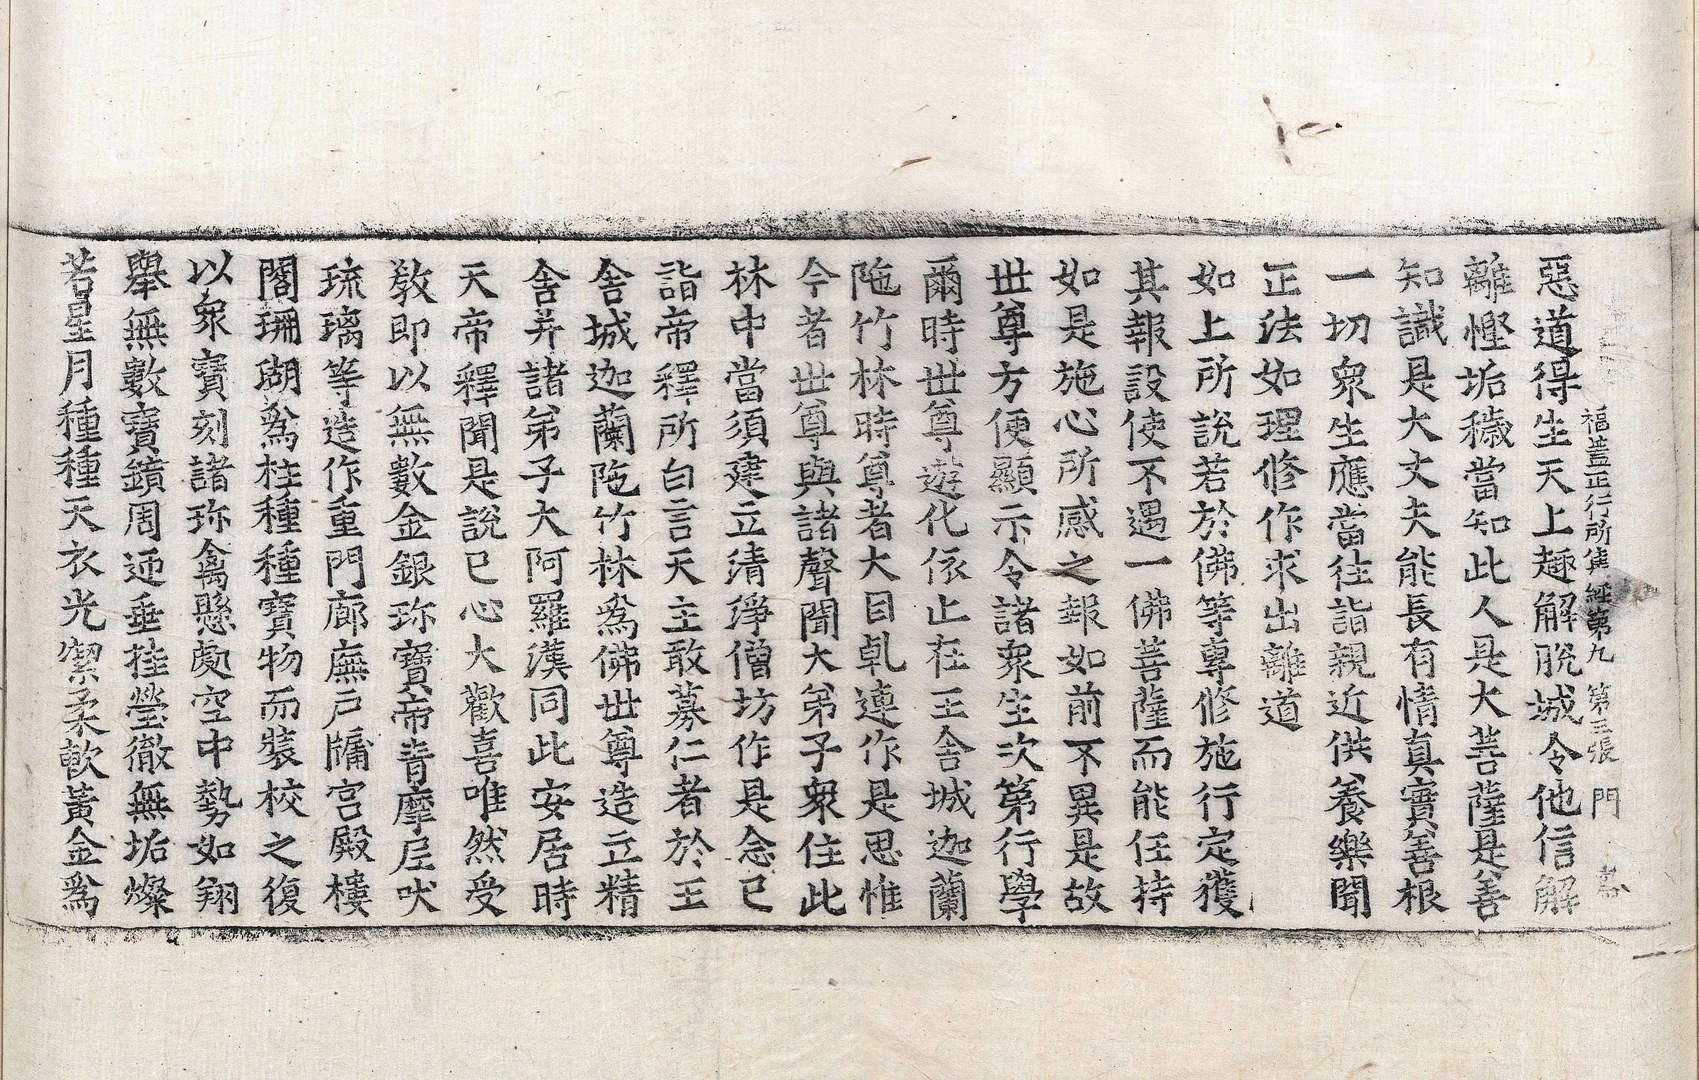 福蓋正行所集經第九　第三張　門
惡道得生天上趣解脫城令他信解
離慳垢穢當知此人是大菩薩是善
知識是大丈夫能長有情真實善根
一切衆生應當往詣親近供養樂聞
正法如理修作求出離道
如上所說若於佛等專修施行定獲
其報設使不遇一佛菩薩而能任持
如是施心所感之報如前不異是故
世尊方便顯示令諸衆生次第行學
爾時世尊遊化依止在王舍城迦蘭
陁竹林時尊者大目乹連作是思惟
今者世尊與諸聲聞大弟子衆住此
林中當須建立清淨僧坊作是念已
詣帝釋所白言天主敢募仁者於王
舍城迦蘭陁竹林爲佛世尊造立精
舍并諸弟子大阿羅漢同此安居時
天帝釋聞是說已心大歡喜唯然受
教即以無數金銀珎寶帝青摩㞐吠
琉璃等造作重門廊廡戶牖宮殿樓
閣珊瑚爲柱種種寶物而裝校之復
以衆寶刻諸珎禽懸處空中勢如翔
舉無數寶鏡周迊垂挂瑩徹無垢燦
若星月種種天衣光潔柔軟黃金爲